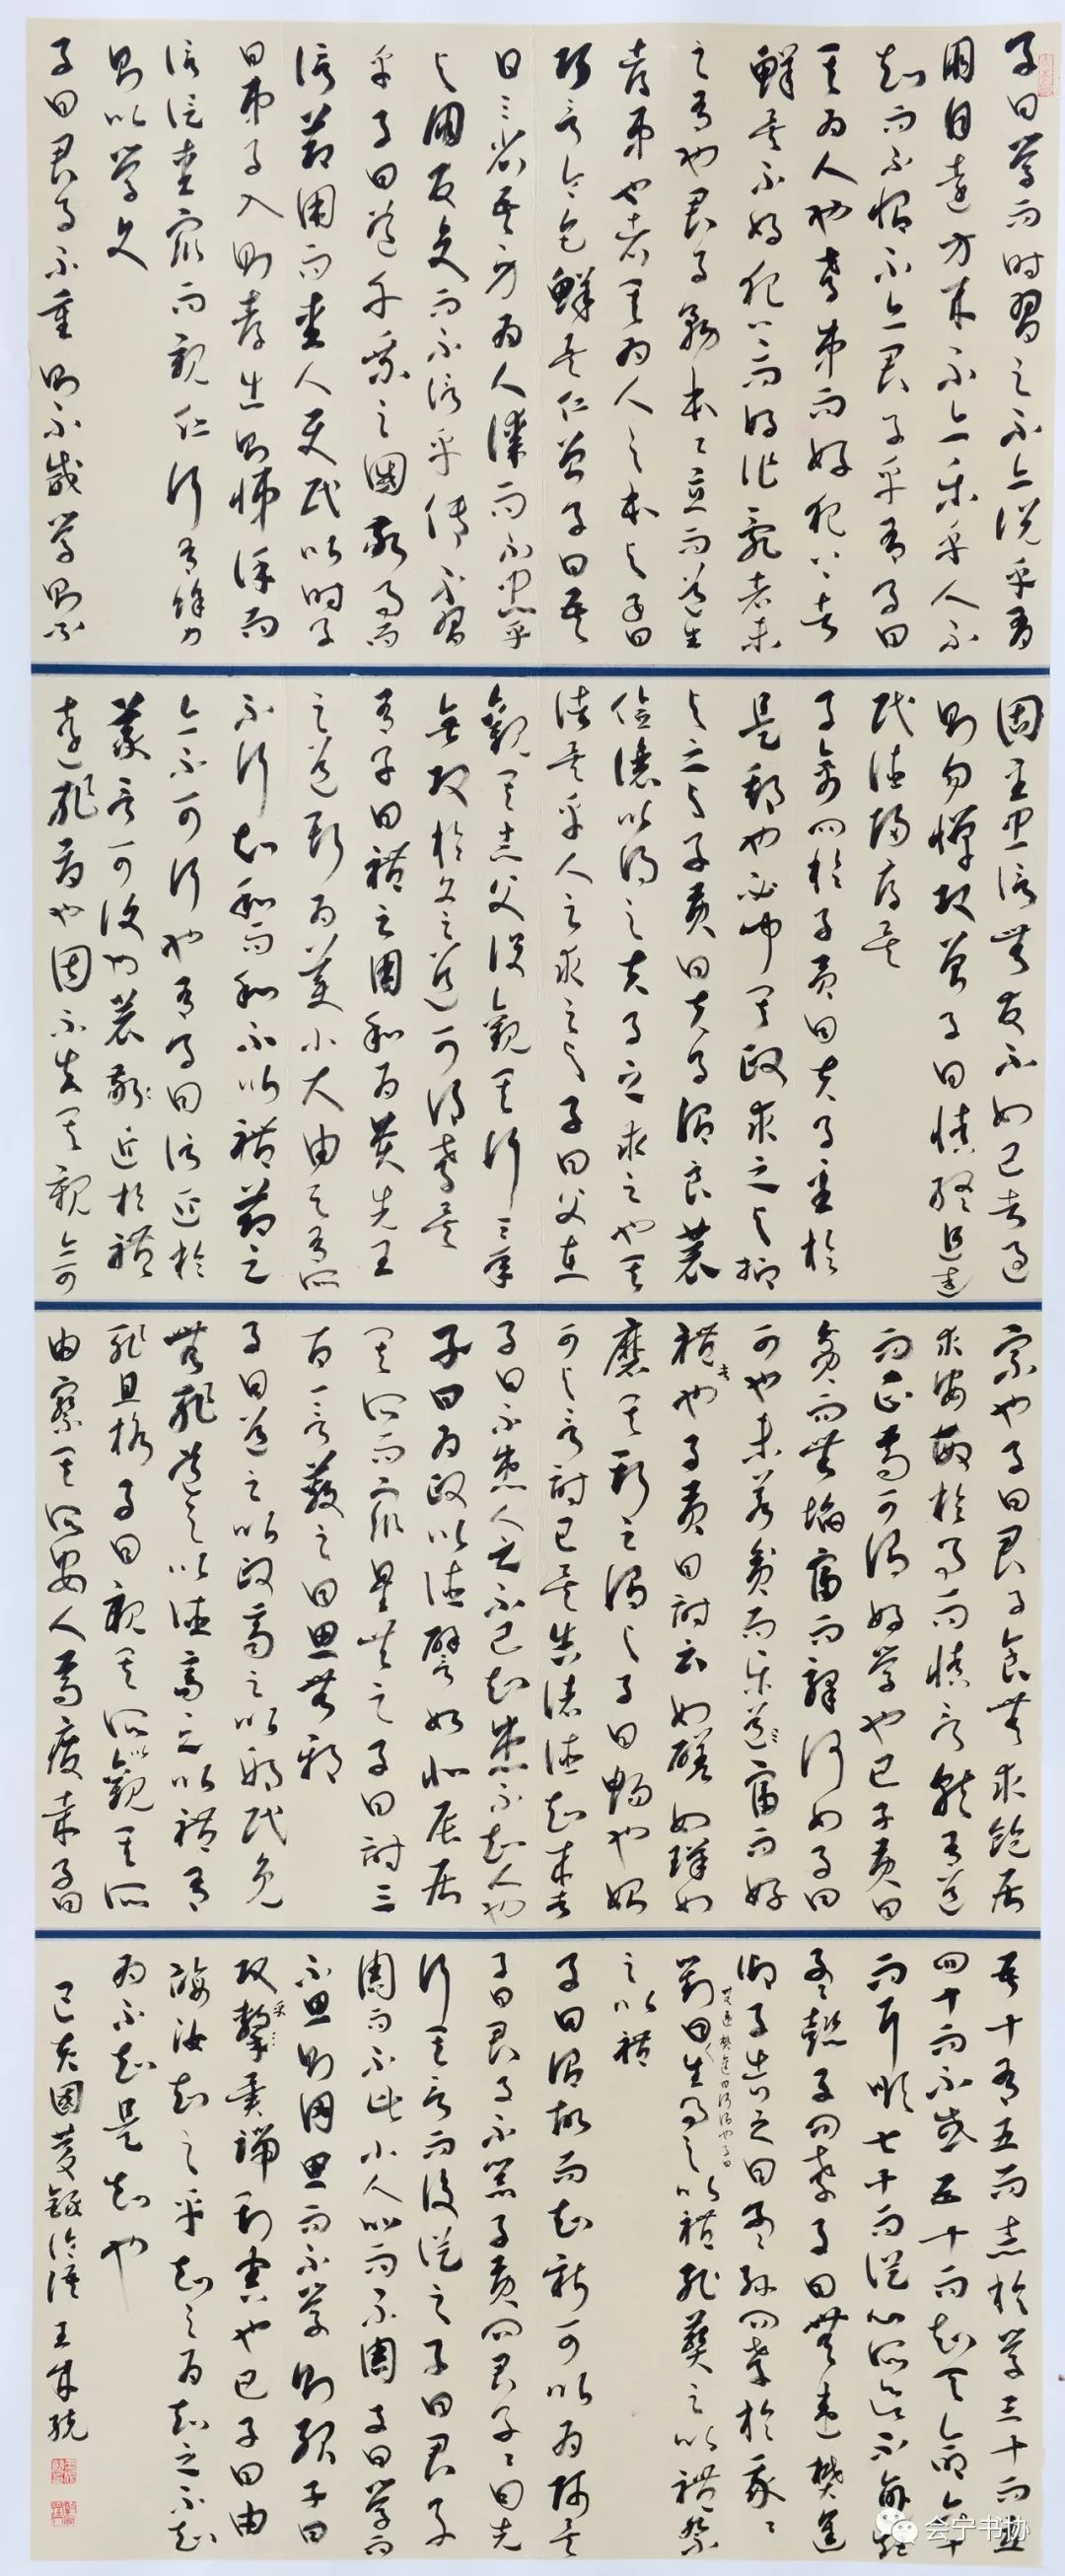 子曰學而时習之不亦说乎有
朋自遠方来不亦樂乎人不
知而不愠不亦君子乎有子曰
其为人也孝弟而好犯上者
鮮矣不好犯上而好作亂者未
之有也君子務本〻立而道生
孝弟也者其为人之本与子曰
巧言令色鮮矣仁曾子曰吾
日三省吾身为人謀而不忠乎
与朋友交而不信乎傳不習
乎子曰道千乘之國敬事而
信節用而愛人使民以時子
曰弟子入則孝出則悌謹而
信汎愛眾而親仁行有餘力
則以學文
子曰君子不重則不威學則不
固主忠信無友不如己者過
則勿憚改曾子曰慎終追遠
民德歸厚矣
子禽問於子貢曰夫子至於
是邦也必聞其政求之与抑
与之与子貢曰夫子溫良恭
儉讓以得之夫子之求之也其
諸異乎人之求之与子曰父在
觀其志父沒觀其行三年
無改於父之道可謂孝矣
有子曰禮之用和为貴先王
之道斯为美小大由之有所
不行知和而和不以禮節之
亦不可行也有子曰信近於
義言可復也恭近於禮
遠恥辱也因不失其親亦可
宗也子曰君子食無求飽居
求安敏於事而慎言就有道
而正焉可謂好學也已子貢曰
貧而無諂富而驕何如子曰
可也未若貧而樂道富而好
禮者也子貢曰詩云如磋如琢如
磨其斯之謂与子曰賜也始
可与言詩已矣告諸往知来者
子曰不患人之不己知患不知人也
子曰为政以德譬如北辰居
其所而眾星共之子曰詩三
百一言蔽之曰思無邪
子曰道之以政齊之以刑民免
無恥道之以德齊之以禮有
恥且格子曰視其所以觀其所
由察其所安人焉廋哉子曰
吾十有五而志於學三十而立
四十而不惑五十而知天命六十
而耳順七十而從心所欲不踰矩
孟懿子問孝子曰無違樊遲
御子告之曰孟孫問孝於我〻
對曰無違樊遲曰何謂也子曰生事之以禮死葬之以禮祭
之以禮
子曰溫故而知新可以为師矣
子曰君子不器子貢問君子〻曰先
行其言而後從之子曰君子
周而不比小人比而不周子曰學而
不思則罔思而不學則殆子曰
攻乎異端斯害也已子曰由
誨汝知之乎知之为知之不知
为不知是知也
己亥國慶錄論語王来
会宁书协